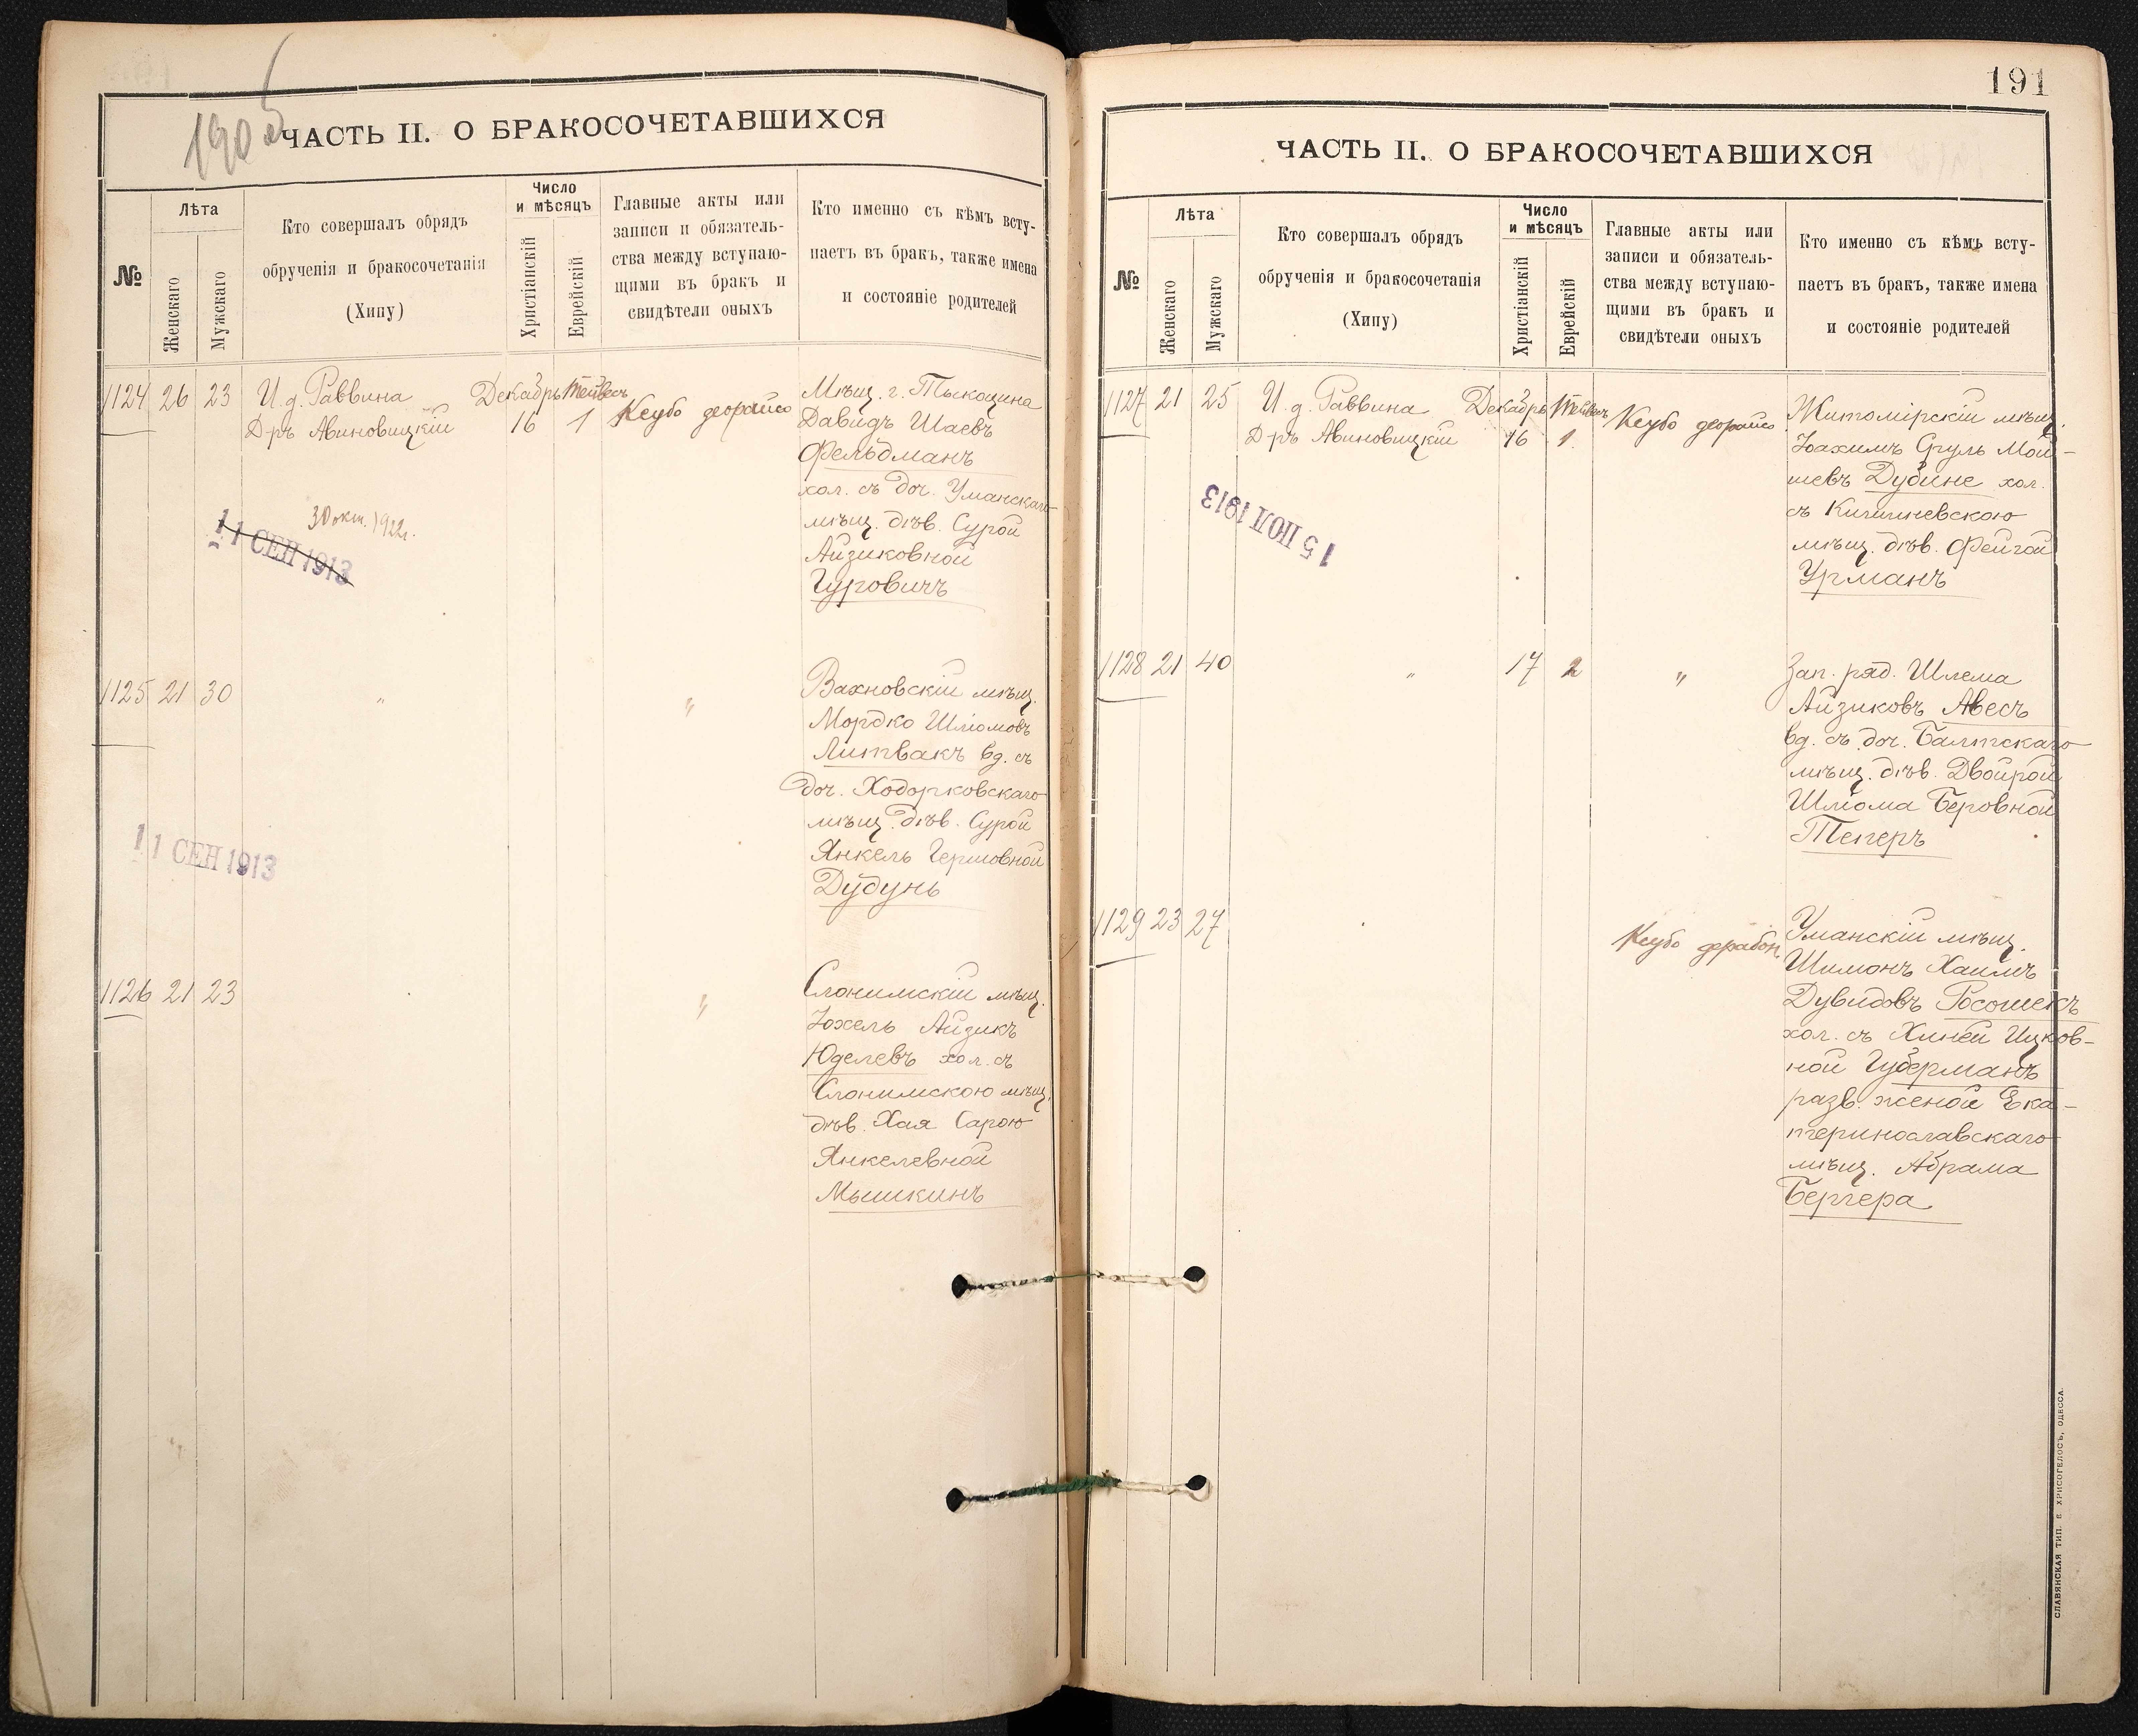 1905
ЧАСТЬ II. О БРАКОСОЧЕТАВШИХСЯ
№
Лѣта
Женскаго
Мужскаго
Кто совершалъ обрядъ
обрученія и бракосочетанія
(Хипу)
Число
и мѣсяцъ
Христіанскій
Еврейскій
Главные акты или
записи и обязатель-
ства между вступаю-
щими въ бракъ и
свидѣтели оныхъ
Кто именно съ кѣмъ всту-
паетъ въ бракъ, также имена
и состояніе родителей
1124 26 23
И. д. Раввина
Д-ръ Авиновицкій
Декабрь Тейвесъ
16 1
Кеубо деорайсо
Мѣщ. г. Тыкоцина
Давидъ Шаевъ
Фельдманъ
хол. съ доч. Уманскаго
мѣщ. дѣв. Сурой
Айзиковной
Гуровичъ
30 окт. 1922г.
11 СЕН 1913
1125 21 30
"
"
Вахновскій мѣщ.
Мордко Шліомовъ
Литвакъ вд. съ
доч. Ходорковскаго
мѣщ. дѣв. Сурой
Янкель Гершовной
Дудунь
11 СЕН 1913
1126 21 23
"
Слонимскій мѣщ.
Іохель Айзикъ
Юделевъ хол. съ
Слонимскою мѣщ.
дѣв. Хая Сарою
Янкелевной
Мышкинъ
191
ЧАСТЬ II. О БРАКОСОЧЕТАВШИХСЯ
№
Лѣта
Женскаго
Мужскаго
Кто совершалъ обрядъ
обрученія и бракосочетанія
(Хипу)
Число
и мѣсяцъ
Христіанскій
Еврейскій
Главные акты или
записи и обязатель-
ства между вступаю-
щими въ бракъ и
свидѣтели оныхъ
Кто именно съ кѣмъ всту-
паетъ въ бракъ, также имена
и состояніе родителей
1127 21 25
И. д. Раввина
Д-ръ Авиновицкій
Декабрь Тейвесъ
16 1.
Кеубо деорайсо
Житомірскій мѣщ.
Іоахимъ Сруль Мой-
шевъ Дубине хол.
съ Кишиневскою
мѣщ. дѣв. Фейгой
Урманъ
15 ІЮЛ 1913
1128 21 40
"
17 2
"
Зап. ряд. Шлема
Айзиковъ Авесъ
вд. съ доч. Балтскаго
мѣщ. дѣв. Двойрой
Шліома Беровной
Теперъ
1129 23 27
Кеубо дерабон.
Уманскій мѣщ.
Шимонъ Хаимъ
Дувидовъ Росошекъ
хол. съ Хиней Ицков-
ной Губерманъ
разв. женой Ека-
теринославскаго
мѣщ. Абрама
Бергера
СЛАВЯНСКАЯ ТИП. Е. ХРИСОГЕЛОСЪ, ОДЕССА.